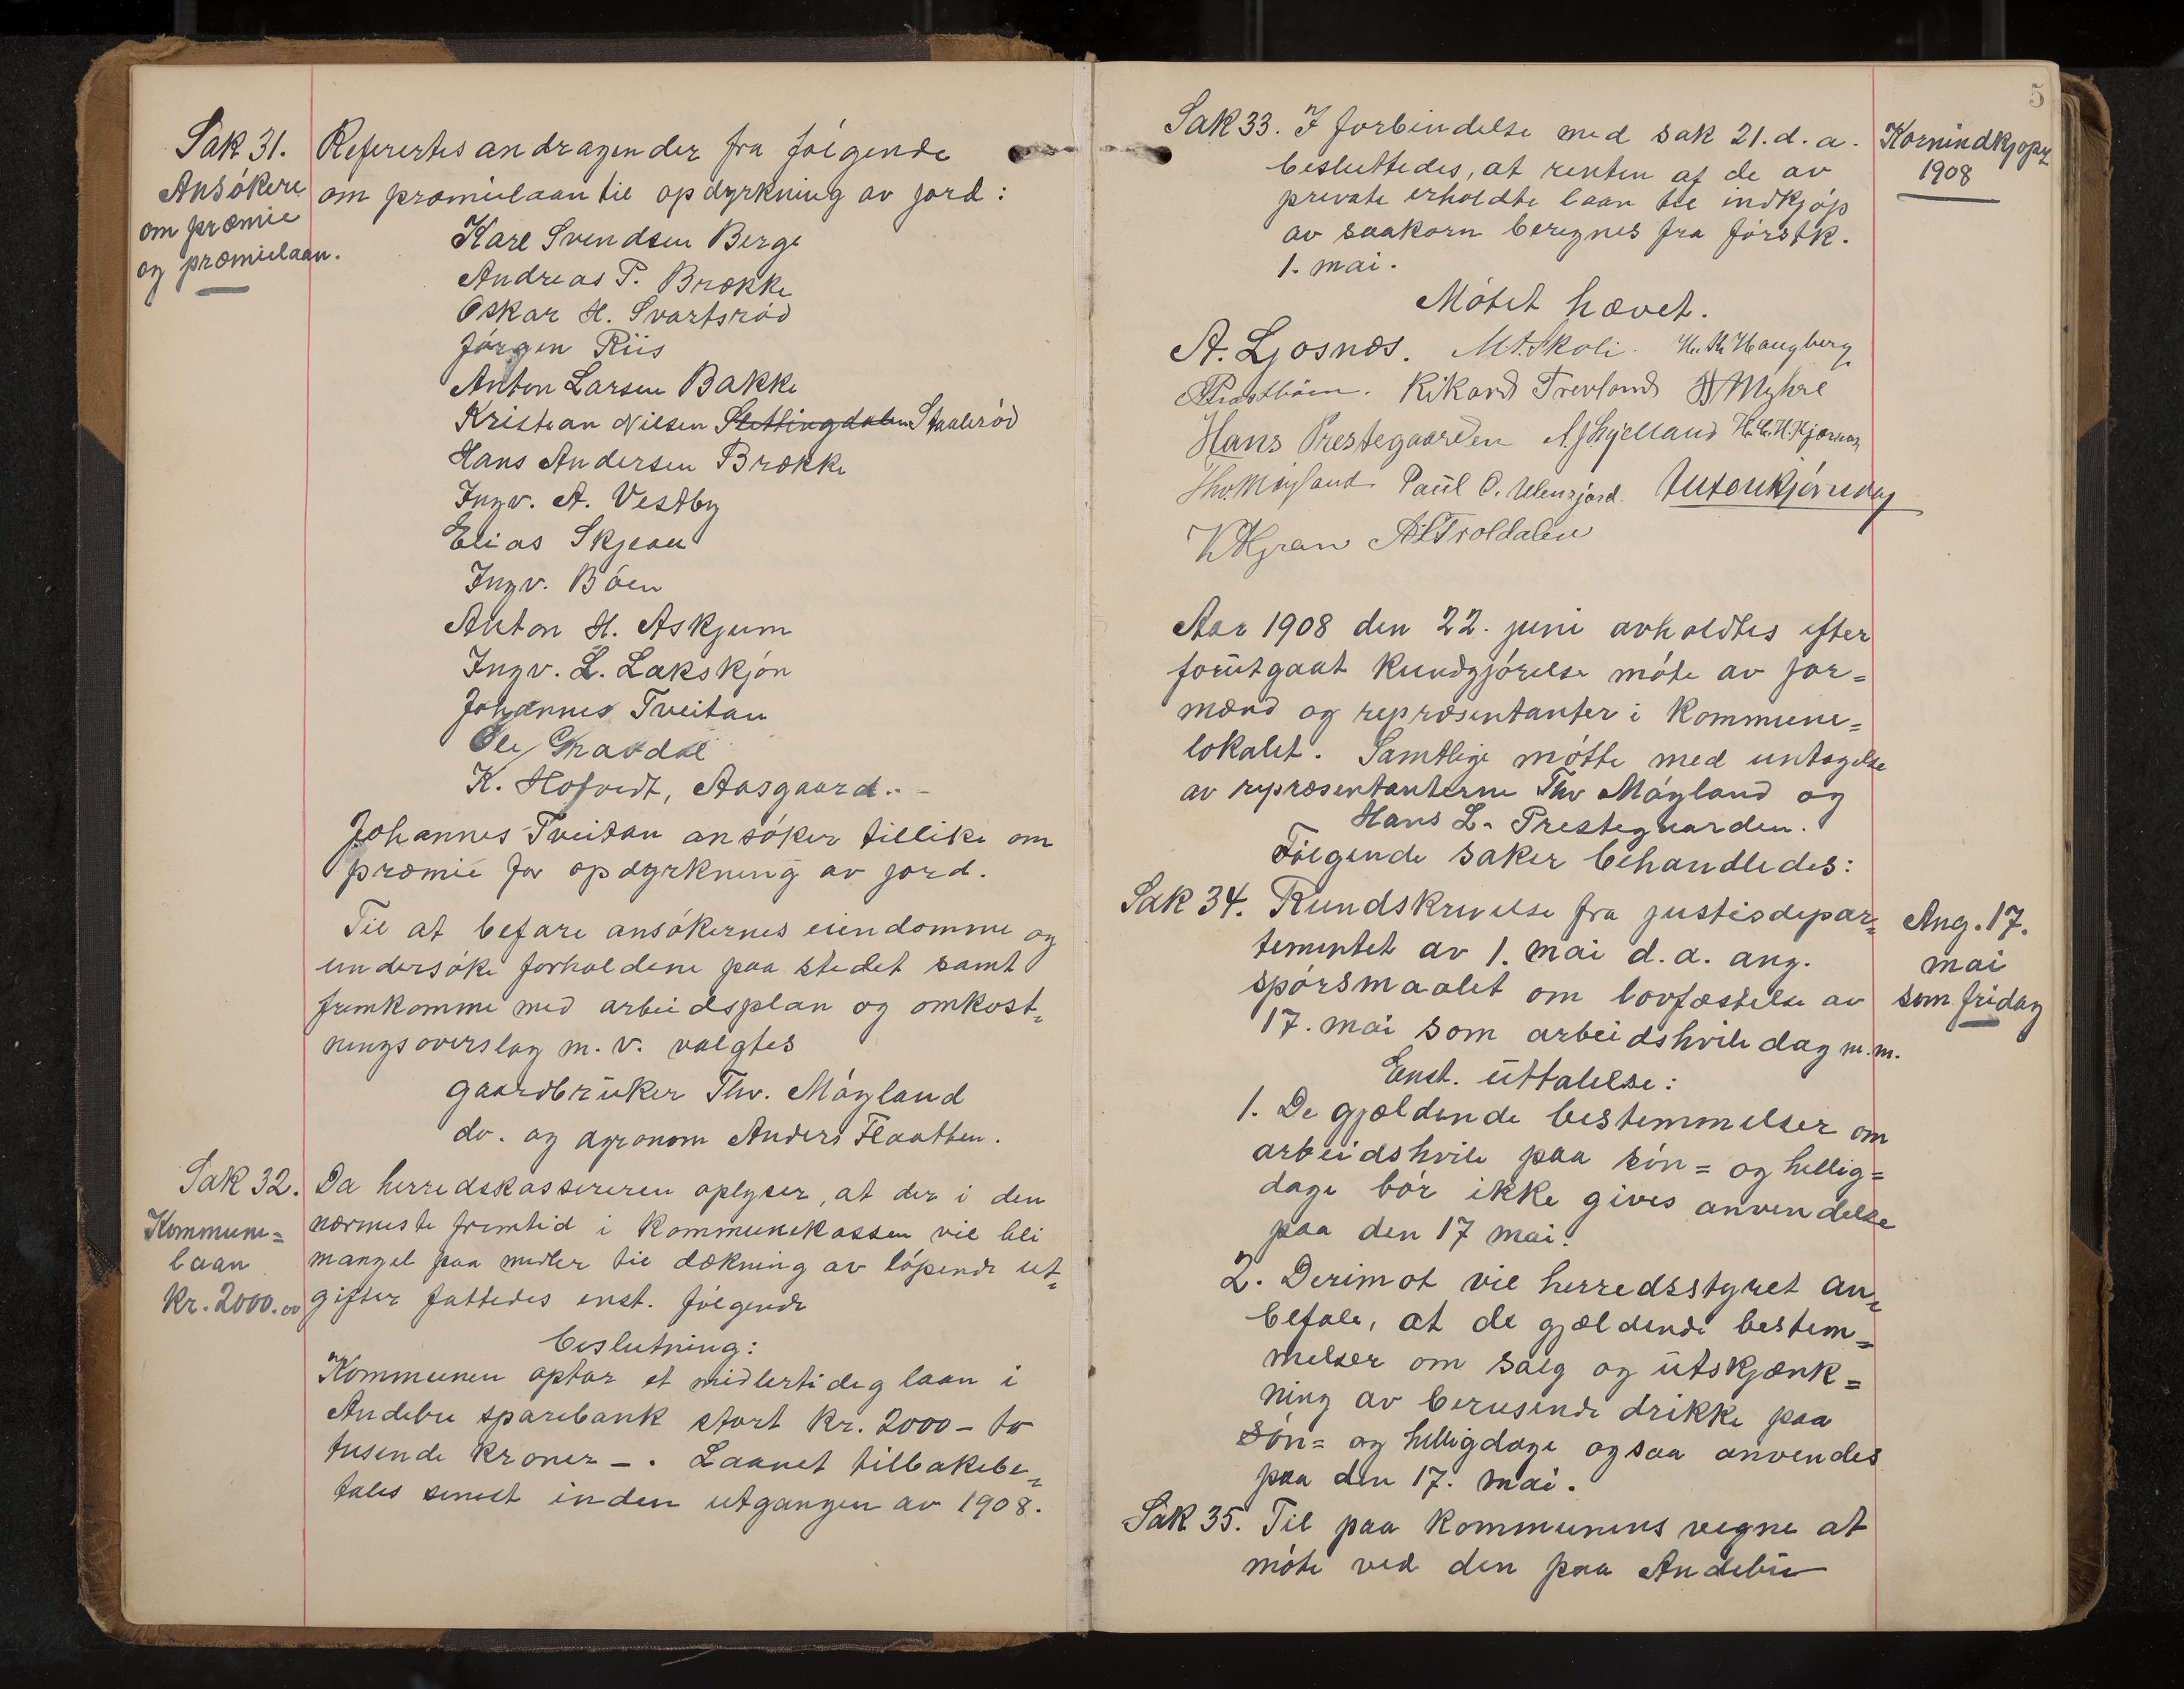 Sak 31.
Ansökere
om præmie
og præmielaan.
Refertes andragender fra følgende
om præmielaan til opdyrkning av jord:
Karl Svendsen Berge
Andreas P. Brække
Oskar H. Svartsrød
Jørgen Riis
Anton Larsen Bakke
Kristian Nilsen Slettingdalen Staalerød
Hans Andersen Brække
Ingv. A. Vestby
Elias Skjeau
Ingv. Böen
Anton H. Askjum
Ingv. L. Lakskjøn
Johannes Tveitan
Ole
K. Hofvedt, Aasgaard. -
Johannes Tveitan ansöker tillike om
præmie for opdyrkning av jord.
Til at befare ansökernes eiendomme og
undersöke forholdene paa stedet samt
fremkomme med arbeidsplan og omkost=
ningsoverslag m. v. valgtes
gaardbruker Thv. Möyland
do. og agronom Anders Flaatten.
Sak 32.
Kommune=
laan
kr. 2000.00
Da herredskassereren oplyser, at der i den
nærmeste fremtid i kommunekassen vil bli
mangel paa midler til dækning av løpende ut=
gifter fattedes enst. følgende
beslutning:
Kommunen optar et midlertidig laan i
Andebu sparebank stort kr. 2000 - to
tusende kroner - . Laanet tilbakebe=
tales senest inden utgangen av 1908.
5
Sak 33. I forbindelse med sak 21. d. a.
besluttedes, at renten af de av
private erholdte laan til indkjøp
av saakorn beregnes fra førstk.
1. mai.
Kornindkjøp
1908
Mötet hævet.
A. Ljosnæs. M. Skoli. Haugberg
Rikard Trevland Myhre
Hans Prestegaarden
Thv. Möyland Paul
Gran A. L. Troldalen
Aar 1908 den 22. juni avholdtes efter
forutgaat kundgjörelse möte av for=
mænd og repræsentanter i kommune=
lokalet. Samtlige mötte med untagelse
av repræsentanterne Thv Möyland og
Hans L. Prestegaarden.
Fölgende saker behandledes:
Sak 34. Rundskrivelse fra justisdepar=
tementet av 1. mai d. a. ang.
spörsmaalet om lovfæstelse av
17. mai som arbeidshviledag m.m.
Ang. 17.
mai
som fridag
Enst. uttalelse:
1. De gjældende bestemmelser om
arbeidshvile paa sön= og hellig=
dage bör ikke gives anvendelse
paa den 17 mai.
2. Derimot vil herredsstyret an=
befale, at de gjældende bestem=
melser om salg og utskjænk=
ning av berusende drikke paa
sön= og helligdage ogsaa anvendes
paa den 17. mai.
Sak 35. Til paa kommunens vegne at
möte ved den paa Andebu